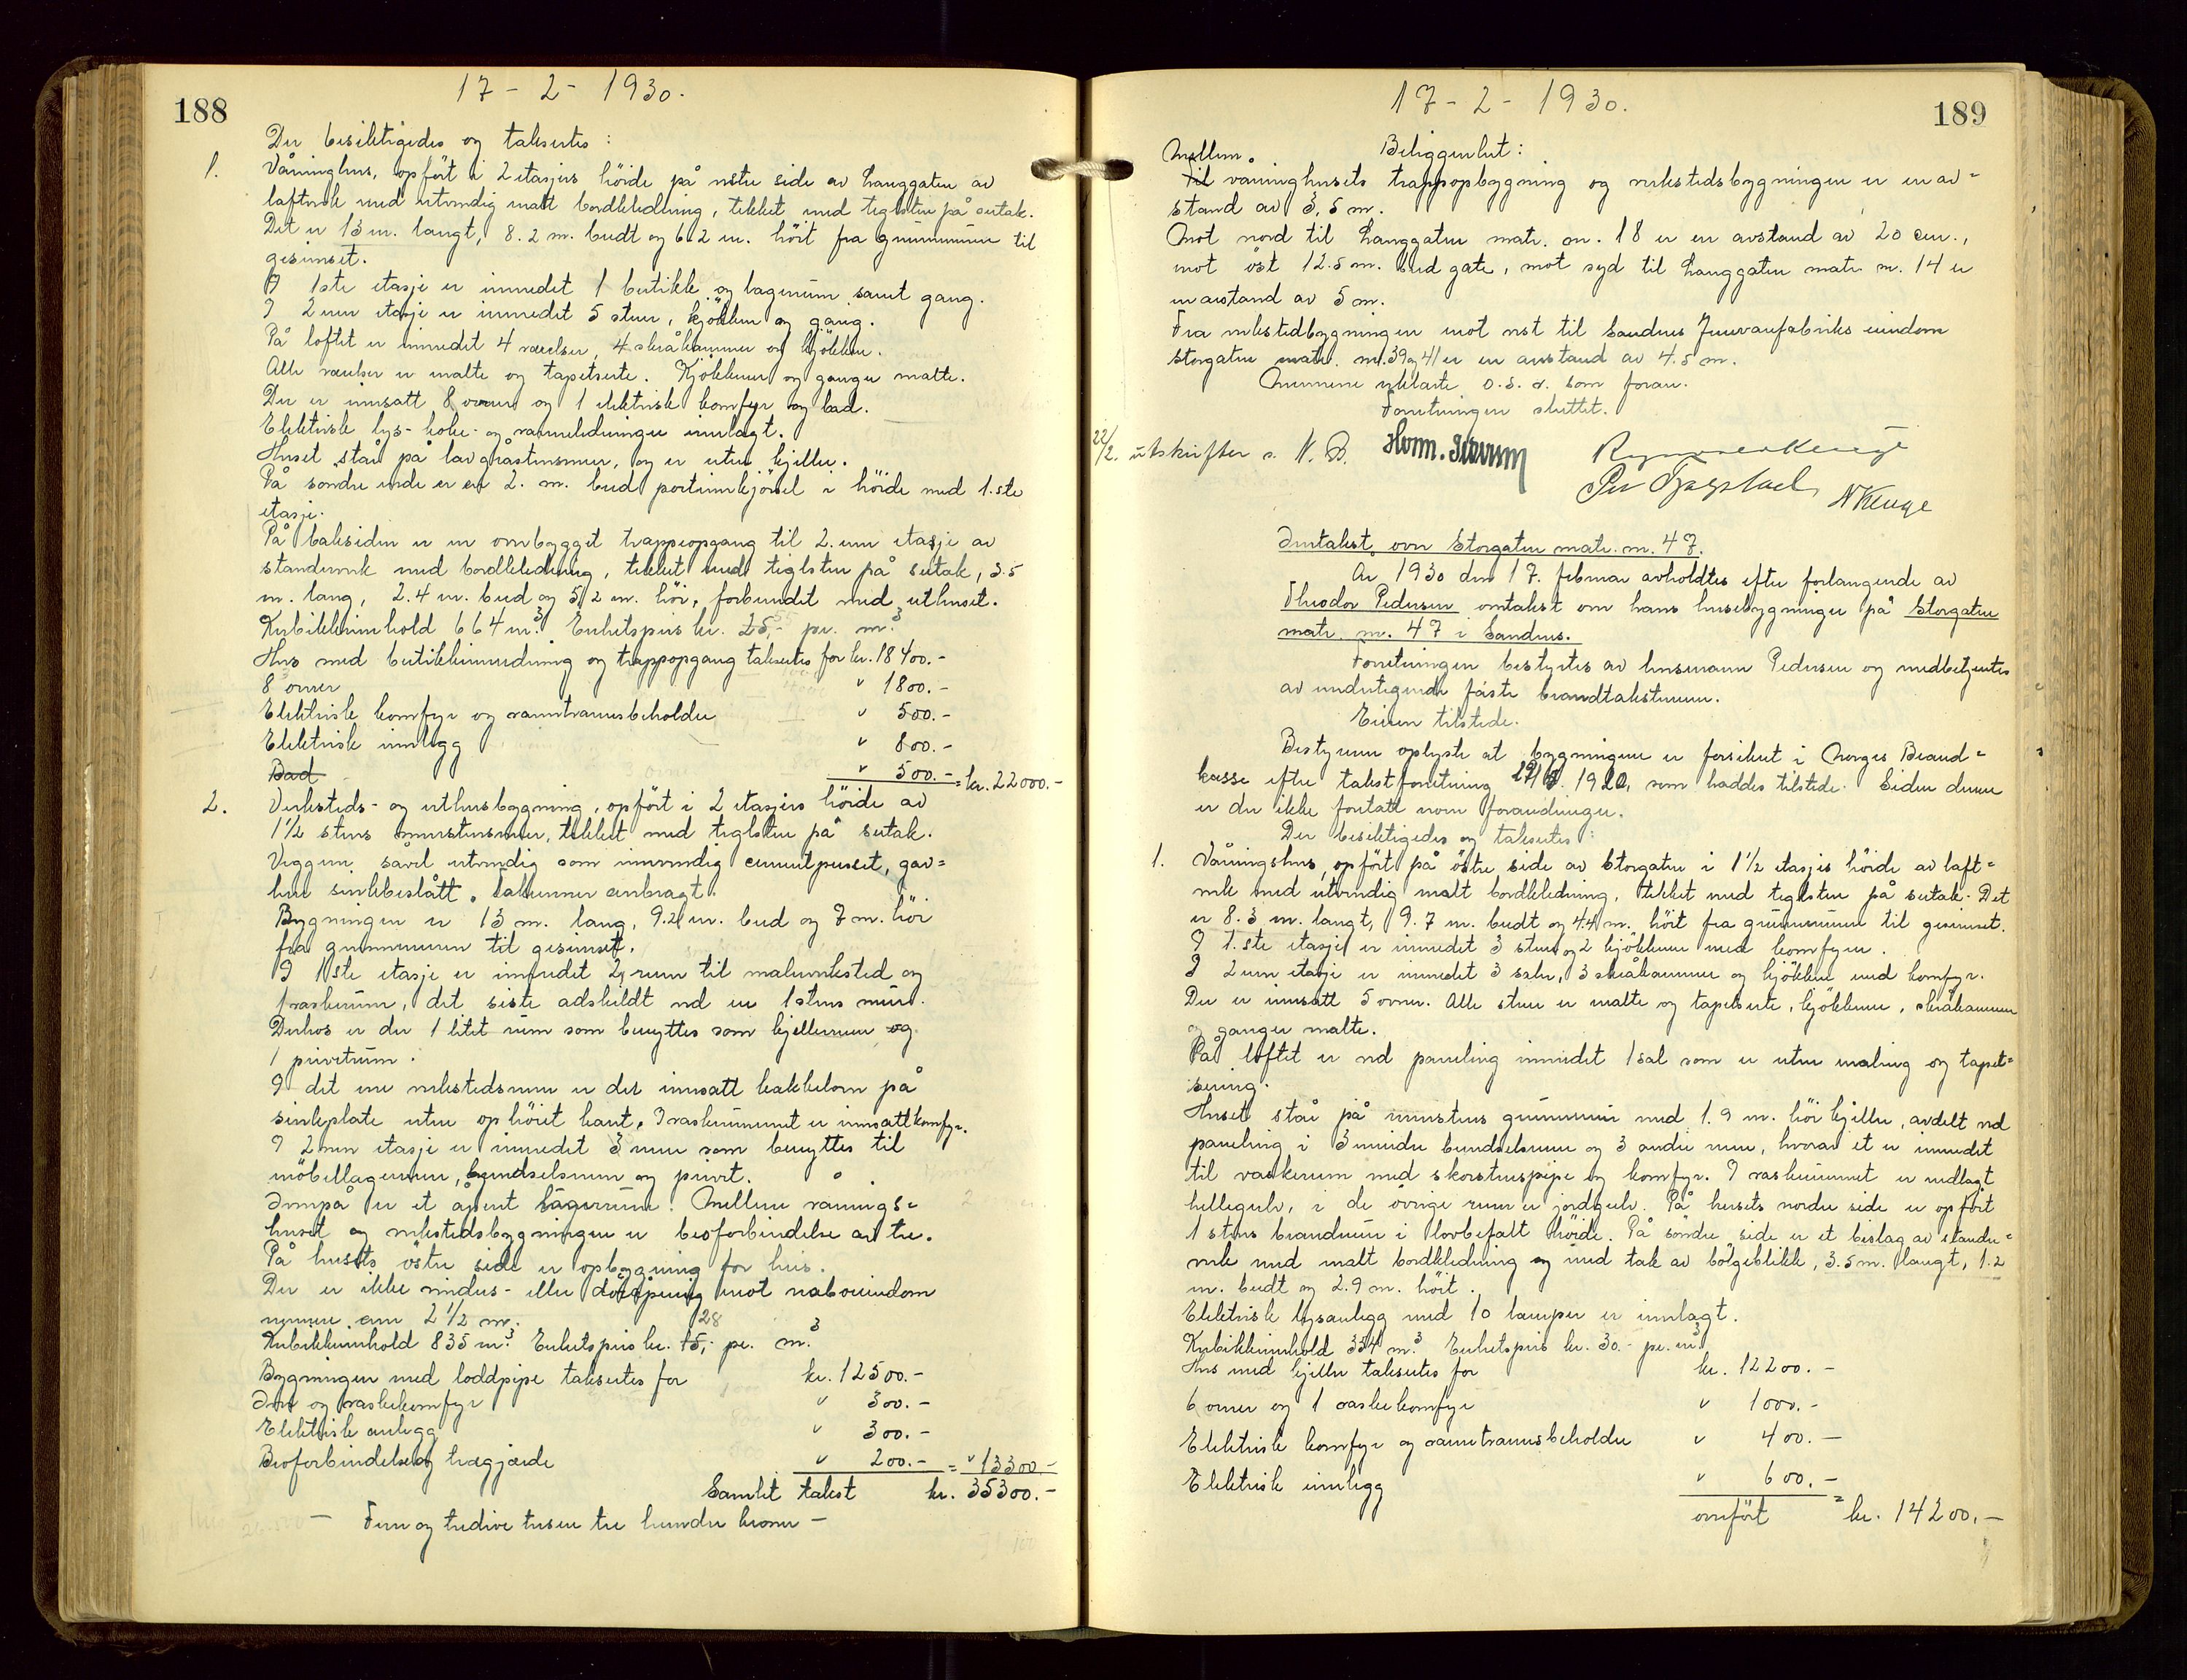 188
17 - 2 - 1930.
Der besiktigedes og taksertes:
1. Våninghus, opført i 2 etasjers höide på vestre side av Langgaten av
laftverk med utvendig malt bordkledning, tekket med teglsten på sutak.
Det er 13 m. langt, 8.2 m. bredt og 6.2 m. höit fra grunnmuren til
gesimset.
I 1ste etasje er innredet 1 butikk og lagerrum samt gang.
I 2nen etasje er innredet 5 stuer, kjökken og gang.
På loftet er innredet 4 værelser, 4 skråkammer og kjökken.
Alle værelser er malte og tapetserte. Kjökkener og ganger malte.
Der er innsatt 8 ovner og 1 elektrisk komfyr og bad.
Elektrisk lys- koke- og varmeledninger innlagt.
Huset står på lav gråstensmur, og er uten kjeller.
På söndre ende er en 2. m. bred portinnkjörsel i höide med 1.ste
etasje.
På baksiden er en ombygget trappeopgang til 2.nen etasje av
standerverk med bordkledning, tekket med teglsten på sutak, 3.5
m. lang, 2.4 m. bred og 5.2 m. höi, forbundet med uthuset.
Kubikkinnhold 664 m³. Enhetspris kr. 25,- pr. m³.
Hus med butikkinnredning og trappopgang taksertes for kr. 18400.-
8 ovner " 1800.-
Elektrisk komfyr og varmtvannsbeholder " 500.-
Elektrisk innlegg " 800.-
Bad " 500.- = kr. 22000.-
2. Verksteds- og uthusbygning, opført i 2 etasjers höide av
1½ stens murstensmur, tekket med teglsten på sutak.
Veggene såvel utvendig som innvendig cementpusset, gav=
lene sinkbeslått. Takrenner anbragt.
Bygningen er 13 m. lang, 9.2 m. bred og 7 m. höi
fra grunnmuren til gesimset.
I 1ste etasje er innredet 2 rum til malerverksted og
1 vaskerum, det siste adskildt ved en 1 stens mur.
Derhos er der 1 litet rum som benyttes som kjellerrum og
1 privetrum.
I det ene verkstedsrum er det innsatt kakkelovn på
sinkplate uten ophöiet kant. I vaskerummet er innsatt komfyr.
I 2nen etasje er innredet 3 rum som benyttes til
möbellagerrum, brendselsrum og privet.
Ovenpå er et åpent lagerrum. Mellem vånings=
huset og verkstedsbygningen er broforbindelse av tre.
På husets östre side er opbygning for heis.
Der er ikke vindus- eller döråpning mot naboeiendom
nærmere enn 2½ m.
Kubikkinnhold 835 m³. Enhetspris kr. 15,- pr. m³
28
Bygningen med loddpipe taksertes for kr. 12500.-
Ovn og vaskekomfyr " 300.-
Elektrisk anlegg " 300.-
Broforbindelse og tregjærde " 200.- = " 13300.-
Samlet takst kr. 35300.-
— Fem og tredive tusen tre hundre kroner —
189
17 - 2 - 1930.
Beliggenhet:
Mellem
Til våninghusets trappopbygning og verkstedsbygningen er en av=
stand av 3,5 m.
Mot nord til Langgaten matr. nr. 18 er en avstand av 20 cm.,
mot öst 12.5 m. bred gate, mot syd til Langgaten matr. nr. 14 er
en avstand av 5 m.
Fra verkstedbygningen mot vest til Sandnes Jernvarefabriks eiendom
Storgaten matr. nr. 39 og 41 er en avstand av 4.5 m.
Mennene erklærte o.s.v. som foran.
Forretningen sluttet.
22/2. utskrifter s. N. B.
N Kluge
Omtakst over Storgaten matr. nr. 47.
År 1930 den 17. februar avholdtes efter forlangende av
Theodor Pedersen omtakst over hans husebygninger på Storgaten
matr. nr. 47 i Sandnes.
Forretningen bestyrtes av lensmann Pedersen og medbetjentes
av undertegnede faste branntakstmenn.
Eieren tilstede.
Bestyreren oplyste at bygningene er forsikret i Norges Brand=
kasse efter takstforretning 1920, som haddes tilstede. Siden denne
er der ikke foretatt noen forandringer.
Der besiktigedes og taksertes:
1. Våningshus, opfört på östre side av Storgaten i 1½ etasjes höide av laft=
verk med utvendig malt bordkledning, tekket med teglsten på sutak. Det
er 8.3 m. langt, 9.7 m. bredt og 4.4 m. höit fra grunnmuren til gesimset.
I 1.ste etasje er innredet 3 stuer og 2 kjökkener med komfyrer.
I 2nen etasje er innredet 3 saler, 3 skråkammer og kjökken med komfyr.
Der er innsatt 5 ovner. Alle stuer er malte og tapetserte, kjökkener, skråkammer
og ganger malte.
På loftet er ved paneling innredet 1 sal som er uten maling og tapet=
sering.
Huset står på murstens grunnmur med 1.9 m. höi kjeller, avdelt ved
paneling i 3 mindre brendselsrum og 3 andre rum, hvorav et er innredet
til vaskerum med skorstenspipe og komfyr. I vaskerummet er nedlagt
hellegulv, i de övrige rum er jordgulv. På husets nordre side er opfört
1 stens brandmur i lovbefalt höide. På söndre side er et bislag av stander=
verk med malt bordkledning og med tak av bölgeblikk, 3.5 m. langt, 1.2
m. bredt og 2.9 m. höit.
Elektrisk lysanlegg med 10 lamper er innlagt.
Kubikkinnhold 354 m³. Enhetspris kr. 30.- pr. m³
Hus med kjeller taksertes for kr. 12200.-
6 ovner og 1 vaskekomfyr " 1000.-
Elektrisk komfyr og varmtvannsbeholder " 400.-
Elektrisk innlegg " 600.-
overfört = kr. 14200.-